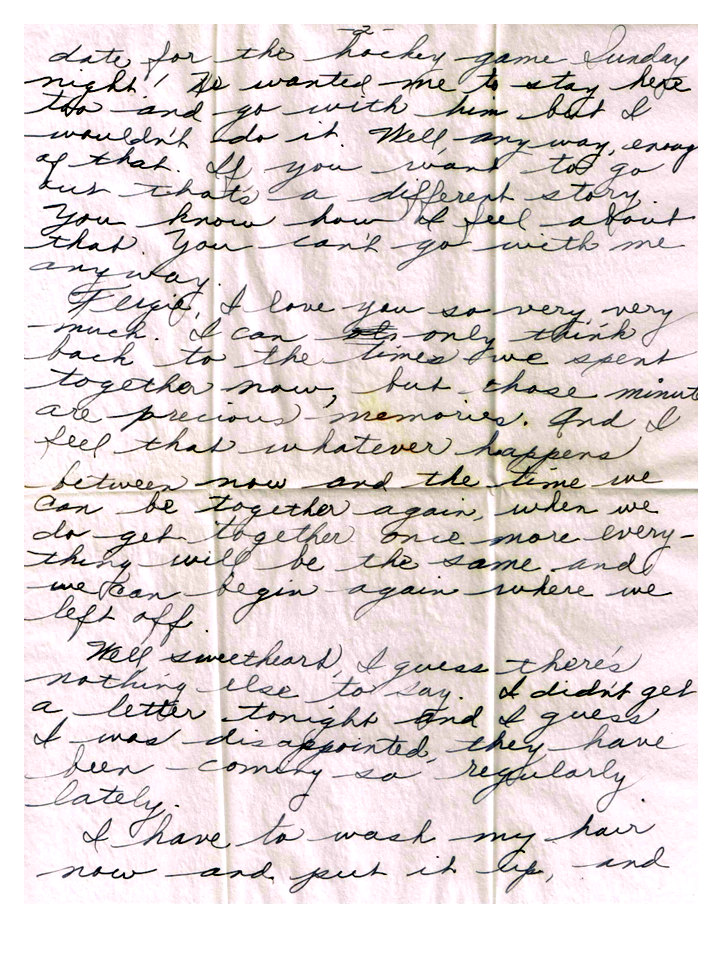 -2-
date for the hockey game Sunday
night! He wanted me to stay here
too and go with him but I
wouldn't do it. Well, any way, enough
of that. If you want to go
out that's a different story.
You know how I feel about
that. You can't go with me
any way.
I love you so very, very
much. I can only think
back to the times we spent
together now, but those minut
are precious memories. And I
feel that whatever happens
between now and the time we
can be together again, when we
do get together once more every-
thing will be the same and
we can begin again where we
left off.
Well sweetheart, I guess there's
nothing else to say. I didn't get
a letter tonight and I guess
I was disappointed, they have
been coming so regularly
lately.
I have to wash my hair
now and put it up, and